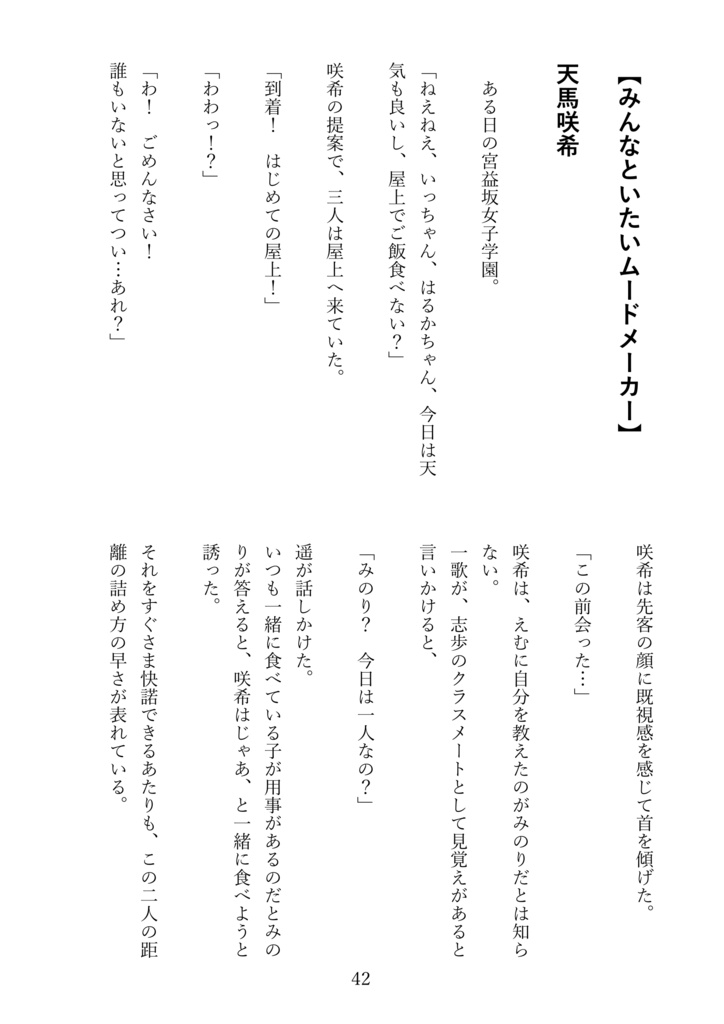 【みんなといたいムードメーカー】
天馬咲希
ある日の宮益坂女子学園。
「ねえねえ、いっちゃん、はるかちゃん、今日は天
気も良いし、屋上でご飯食べない？」
咲希の提案で、三人は屋上へ来ていた。
「到着！　はじめての屋上！」
「わわっ！？」
「わ！　ごめんなさい！
誰もいないと思ってつい…あれ？」
咲希は先客の顔に既視感を感じて首を傾げた。
「この前会った…」
咲希は、えむに自分を教えたのがみのりだとは知ら
ない。
一歌が、志歩のクラスメートとして見覚えがあると
言いかけると、
「みのり？　今日は一人なの？」
遥が話しかけた。
いつも一緒に食べている子が用事があるのだとみの
りが答えると、咲希はじゃあ、と一緒に食べようと
誘った。
それをすぐさま快諾できるあたりも、この二人の距
離の詰め方の早さが表れている。
42